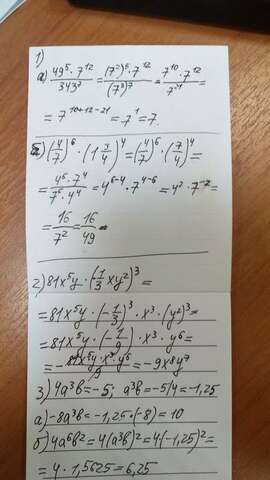 1)
а) 49⁵ · 7¹² / 343⁷ = (7²)⁵ · 7¹² / (7³)⁷ = 7¹⁰ · 7¹² / 7²¹ =
= 7¹⁰⁺¹²⁻²¹ = 7¹ = 7.
б) (4/7)⁶ · (1 3/4)⁴ = (4/7)⁶ · (7/4)⁴ =
= 4⁶ · 7⁴ / 7⁶ · 4⁴ = 4⁶⁻⁴ · 7⁴⁻⁶ = 4² · 7⁻² =
= 16 / 7² = 16/49
2) 81x⁵y · (-1/3 xy²)³ =
= 81x⁵y · (-1/3)³ · x³ · (y²)³ =
= 81x⁵y · (-1/9) · x³ · y⁶ =
= - 81x⁵y · x³ · y⁶ / 9 = -9x⁸y⁷
3) 4a³b = -5; a³b = -5/4 = -1,25
а) -8a³b = -1,25 · (-8) = 10
б) 4a⁶b² = 4(a³b)² = 4(-1,25)² =
= 4 · 1,5625 = 6,25